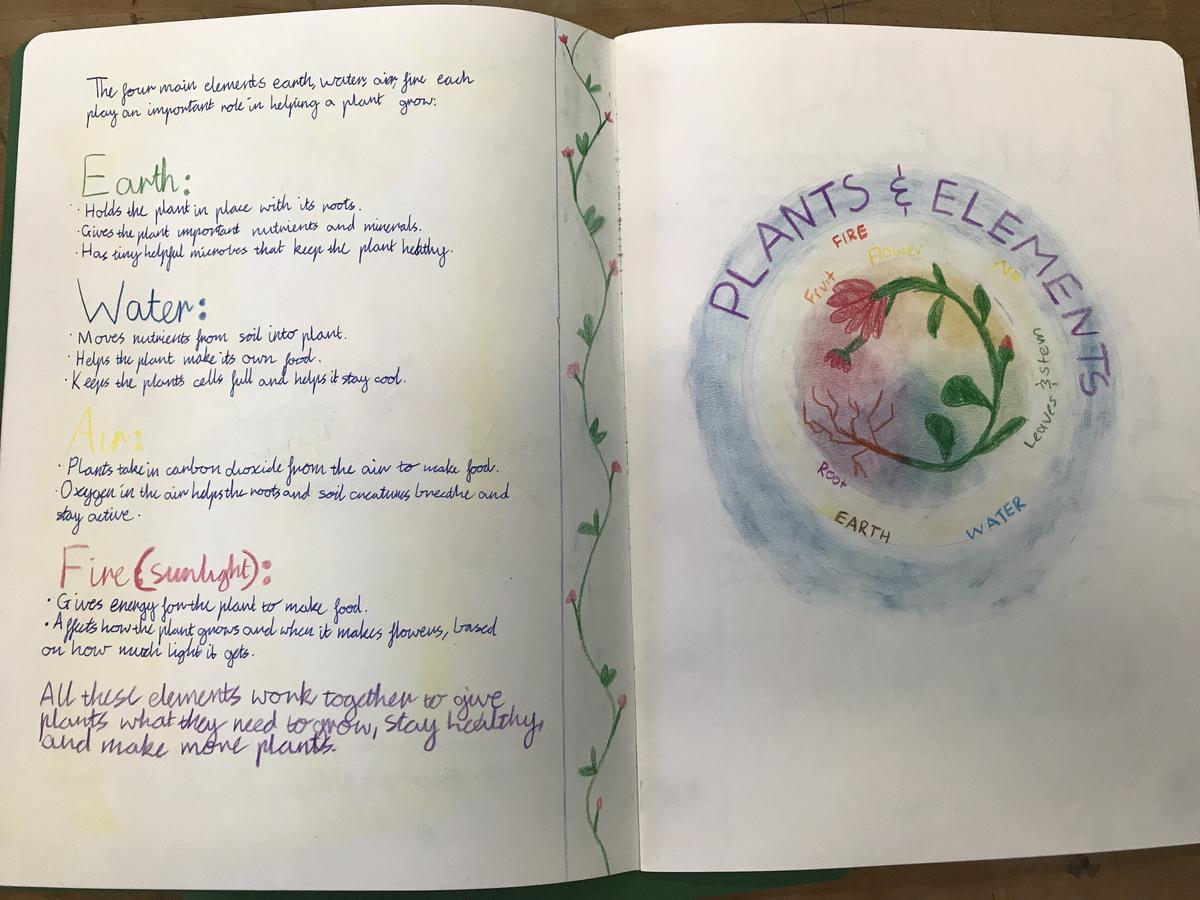 The four main elements earth, water, air, fire each
play an important role in helping a plant grow:
Earth:
· Holds the plant in place with its roots.
· Gives the plant important nutrients and minerals.
· Has tiny helpful microbes that keep the plant healthy.
Water:
· Moves nutrients from soil into plant.
· Helps the plant make its own food.
· Keeps the plants cells full and helps it stay cool.
Air:
· Plants take in carbon dioxide from the air to make food.
· Oxygen in the air helps the roots and soil creatures breathe and
stay active.
Fire (sunlight):
· Gives energy for the plant to make food.
· Affects how the plant grows and when it makes flowers, based
on how much light it gets.
All these elements work together to give
plants what they need to grow, stay healthy,
and make more plants.
PLANTS & ELEMENTS
FIRE
Flower
Air
Fruit
Leaves & Stem
Root
EARTH
WATER